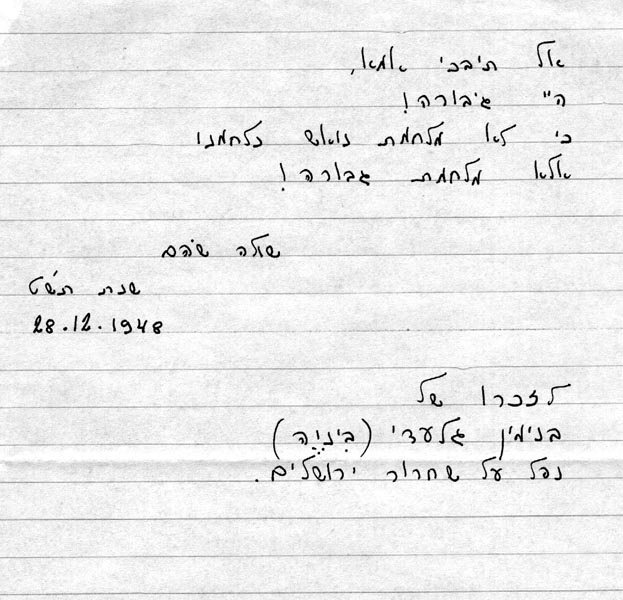 אל תיבכי אמא,
היי גיבורה!
כי לא מלחמת יואש נלחמנו
אלא מלחמת גבורה!
שולה שהם
שנת תש"ט
28.12.1948
לזכרו של
בנימין גלעדי (בִּינְיָה)
נפל על שחרור ירושלים.